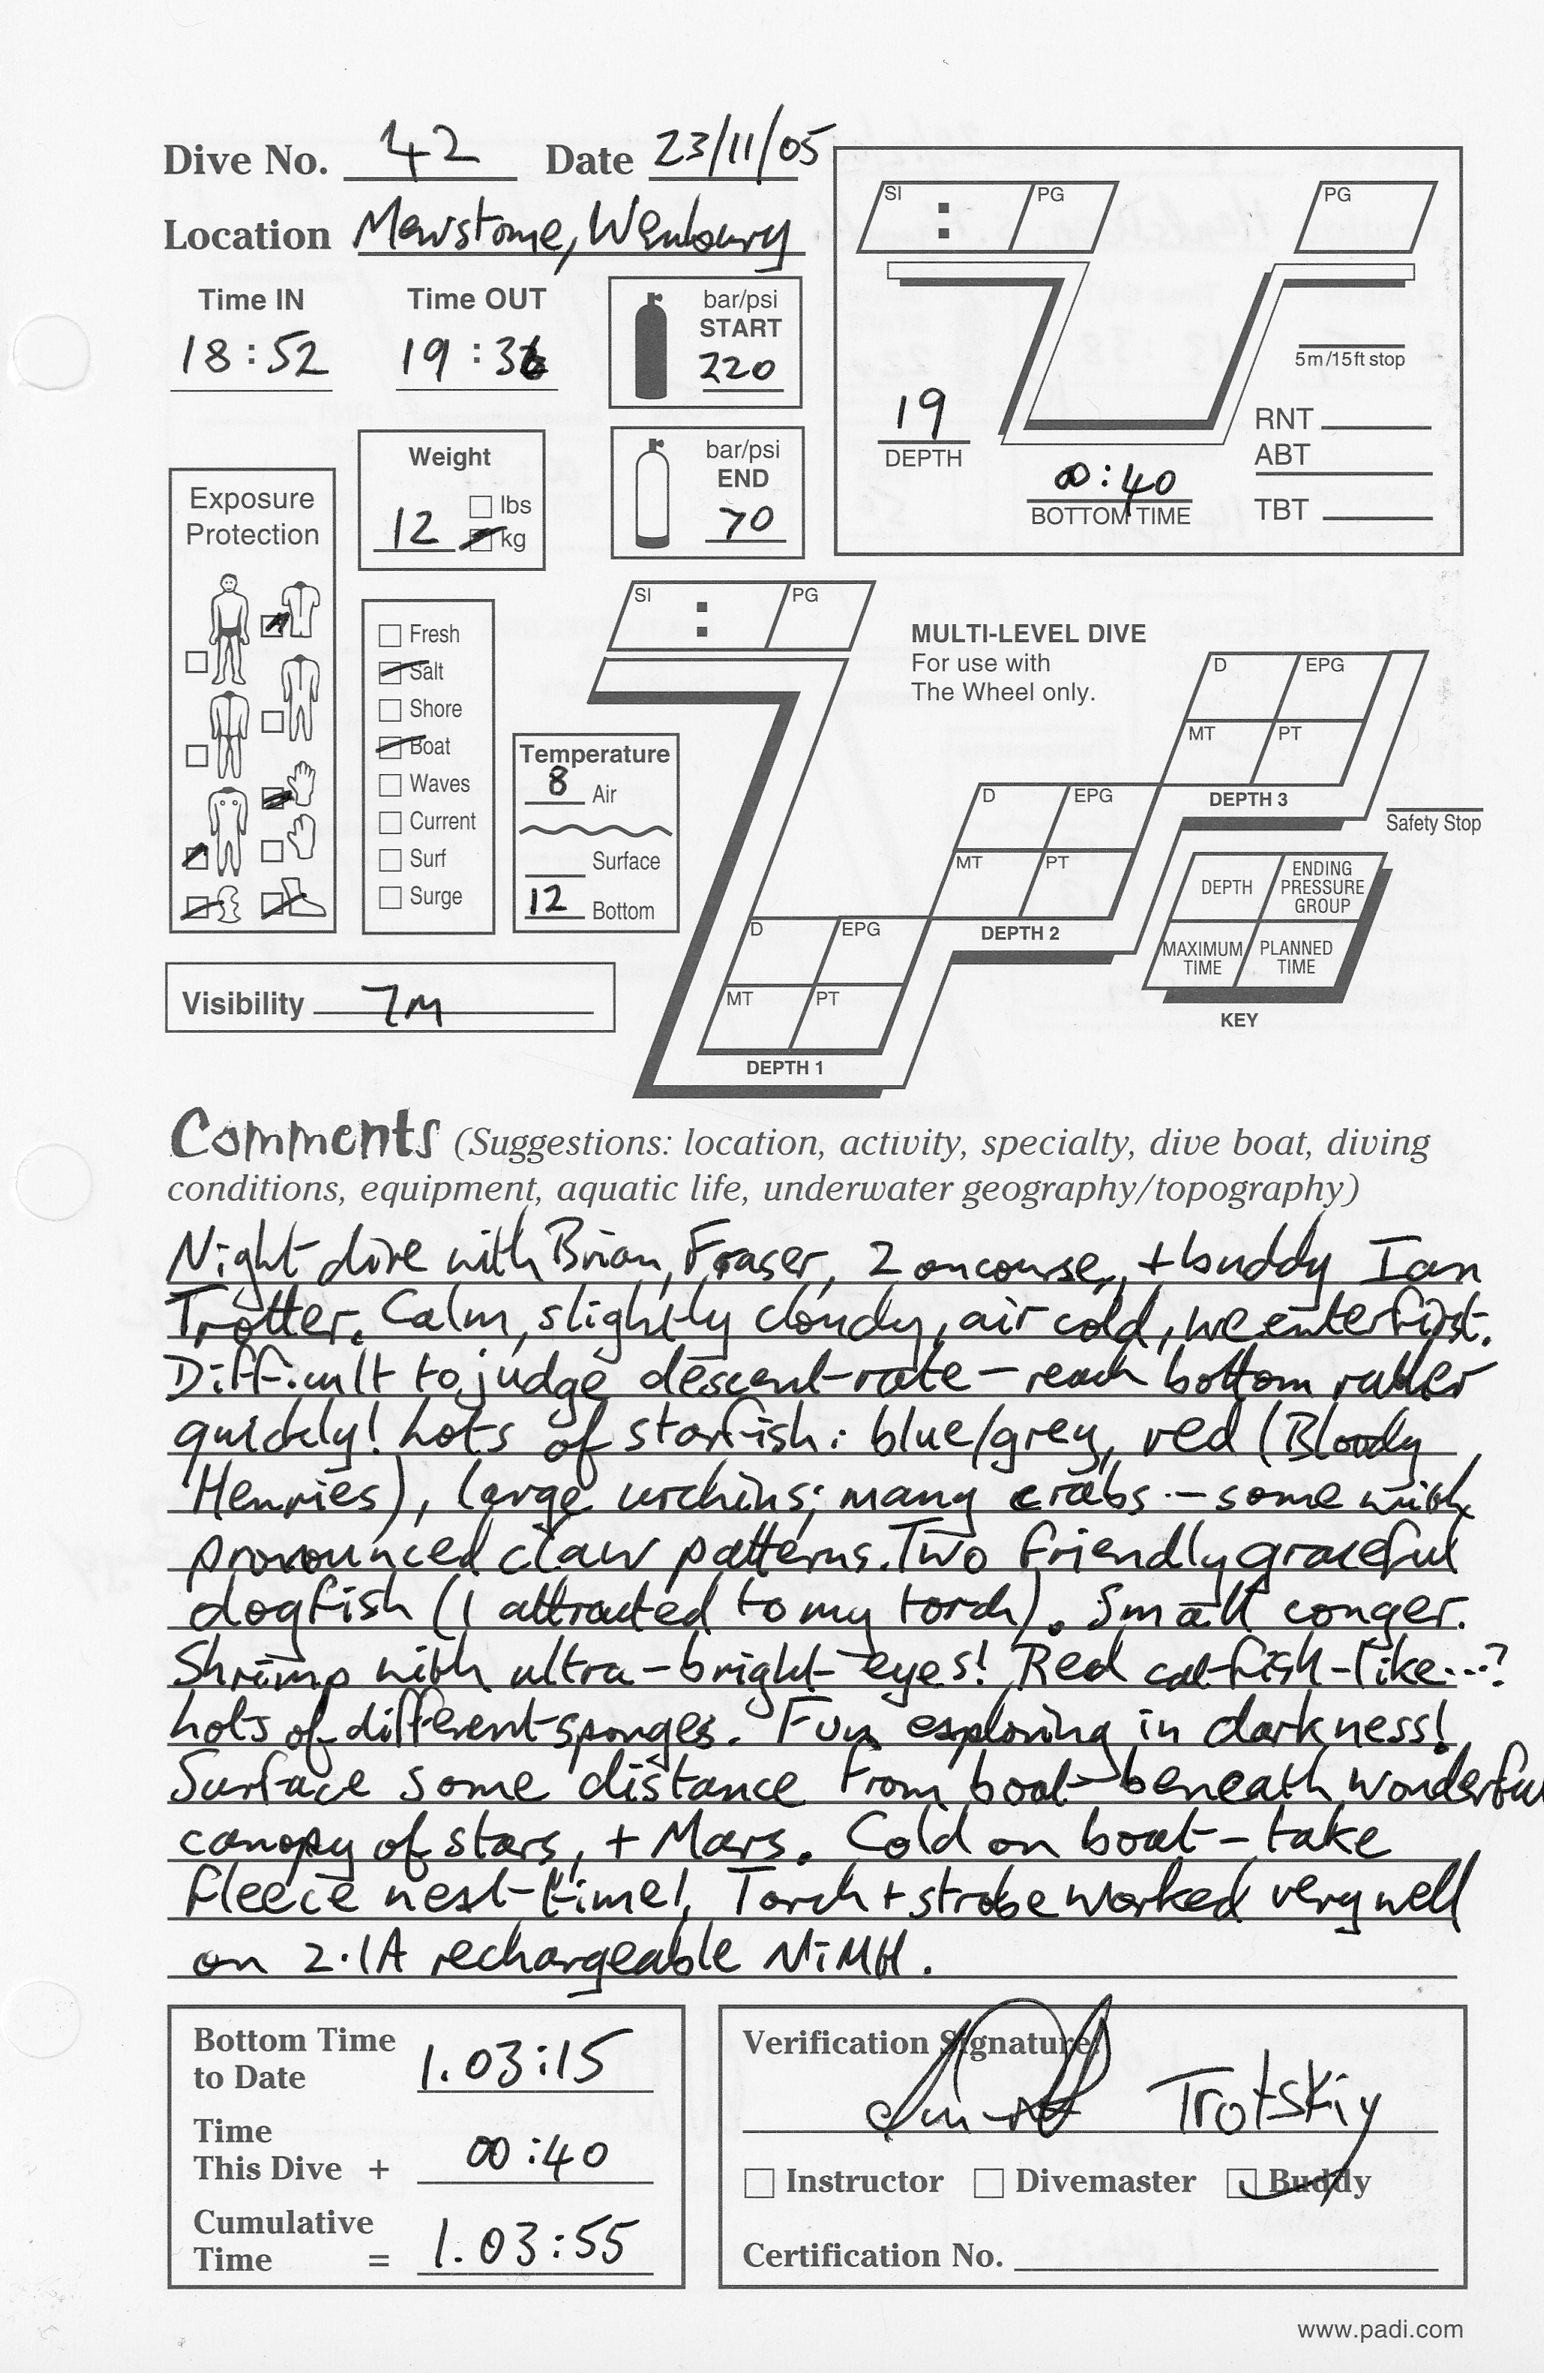 Dive No. 42 Date 23/11/05
Location Mewstone, Wembury
Time IN Time OUT
18:52 19:36
bar/psi
START
220
bar/psi
END
70
Weight
12 lbs
kg
Exposure
Protection
Fresh
Salt
Shore
Boat
Waves
Current
Surf
Surge
Temperature
8 Air
Surface
12 Bottom
Visibility 7M
SI : PG PG
19
DEPTH
00:40
BOTTOM TIME
5m/15ft stop
RNT
ABT
TBT
SI : PG
MULTI-LEVEL DIVE
For use with
The Wheel only.
D EPG
MT PT
DEPTH 3
D EPG
MT PT
DEPTH 2
D EPG
MT PT
DEPTH 1
Safety Stop
DEPTH ENDING PRESSURE GROUP
MAXIMUM TIME PLANNED TIME
KEY
Comments (Suggestions: location, activity, specialty, dive boat, diving
conditions, equipment, aquatic life, underwater geography/topography)
Night dive with Brian, Fraser, 2 on course, + buddy Ian
Trotter. Calm, slightly cloudy, air cold, we enter first.
Difficult to judge descent-rate – reach bottom rather
quickly! Lots of starfish: blue/grey, red (Bloody
Henries), large urchins; many crabs – some with
pronounced claw patterns. Two friendly graceful
dogfish (1 attracted to my torch). Small conger.
Shrimp with ultra-bright eyes! Red cat-fish-like...?
Lots of different sponges. Fun exploring in darkness!
Surface some distance from boat – beneath wonderful
canopy of stars, + Mars. Cold on boat – take
fleece next-time! Torch + strobe worked very well
on 2.1A rechargeable NiMH.
Bottom Time
to Date 1.03:15
Time
This Dive + 00:40
Cumulative
Time = 1.03:55
Verification Signature
Trotskiy
Instructor Divemaster Buddy
Certification No.
www.padi.com